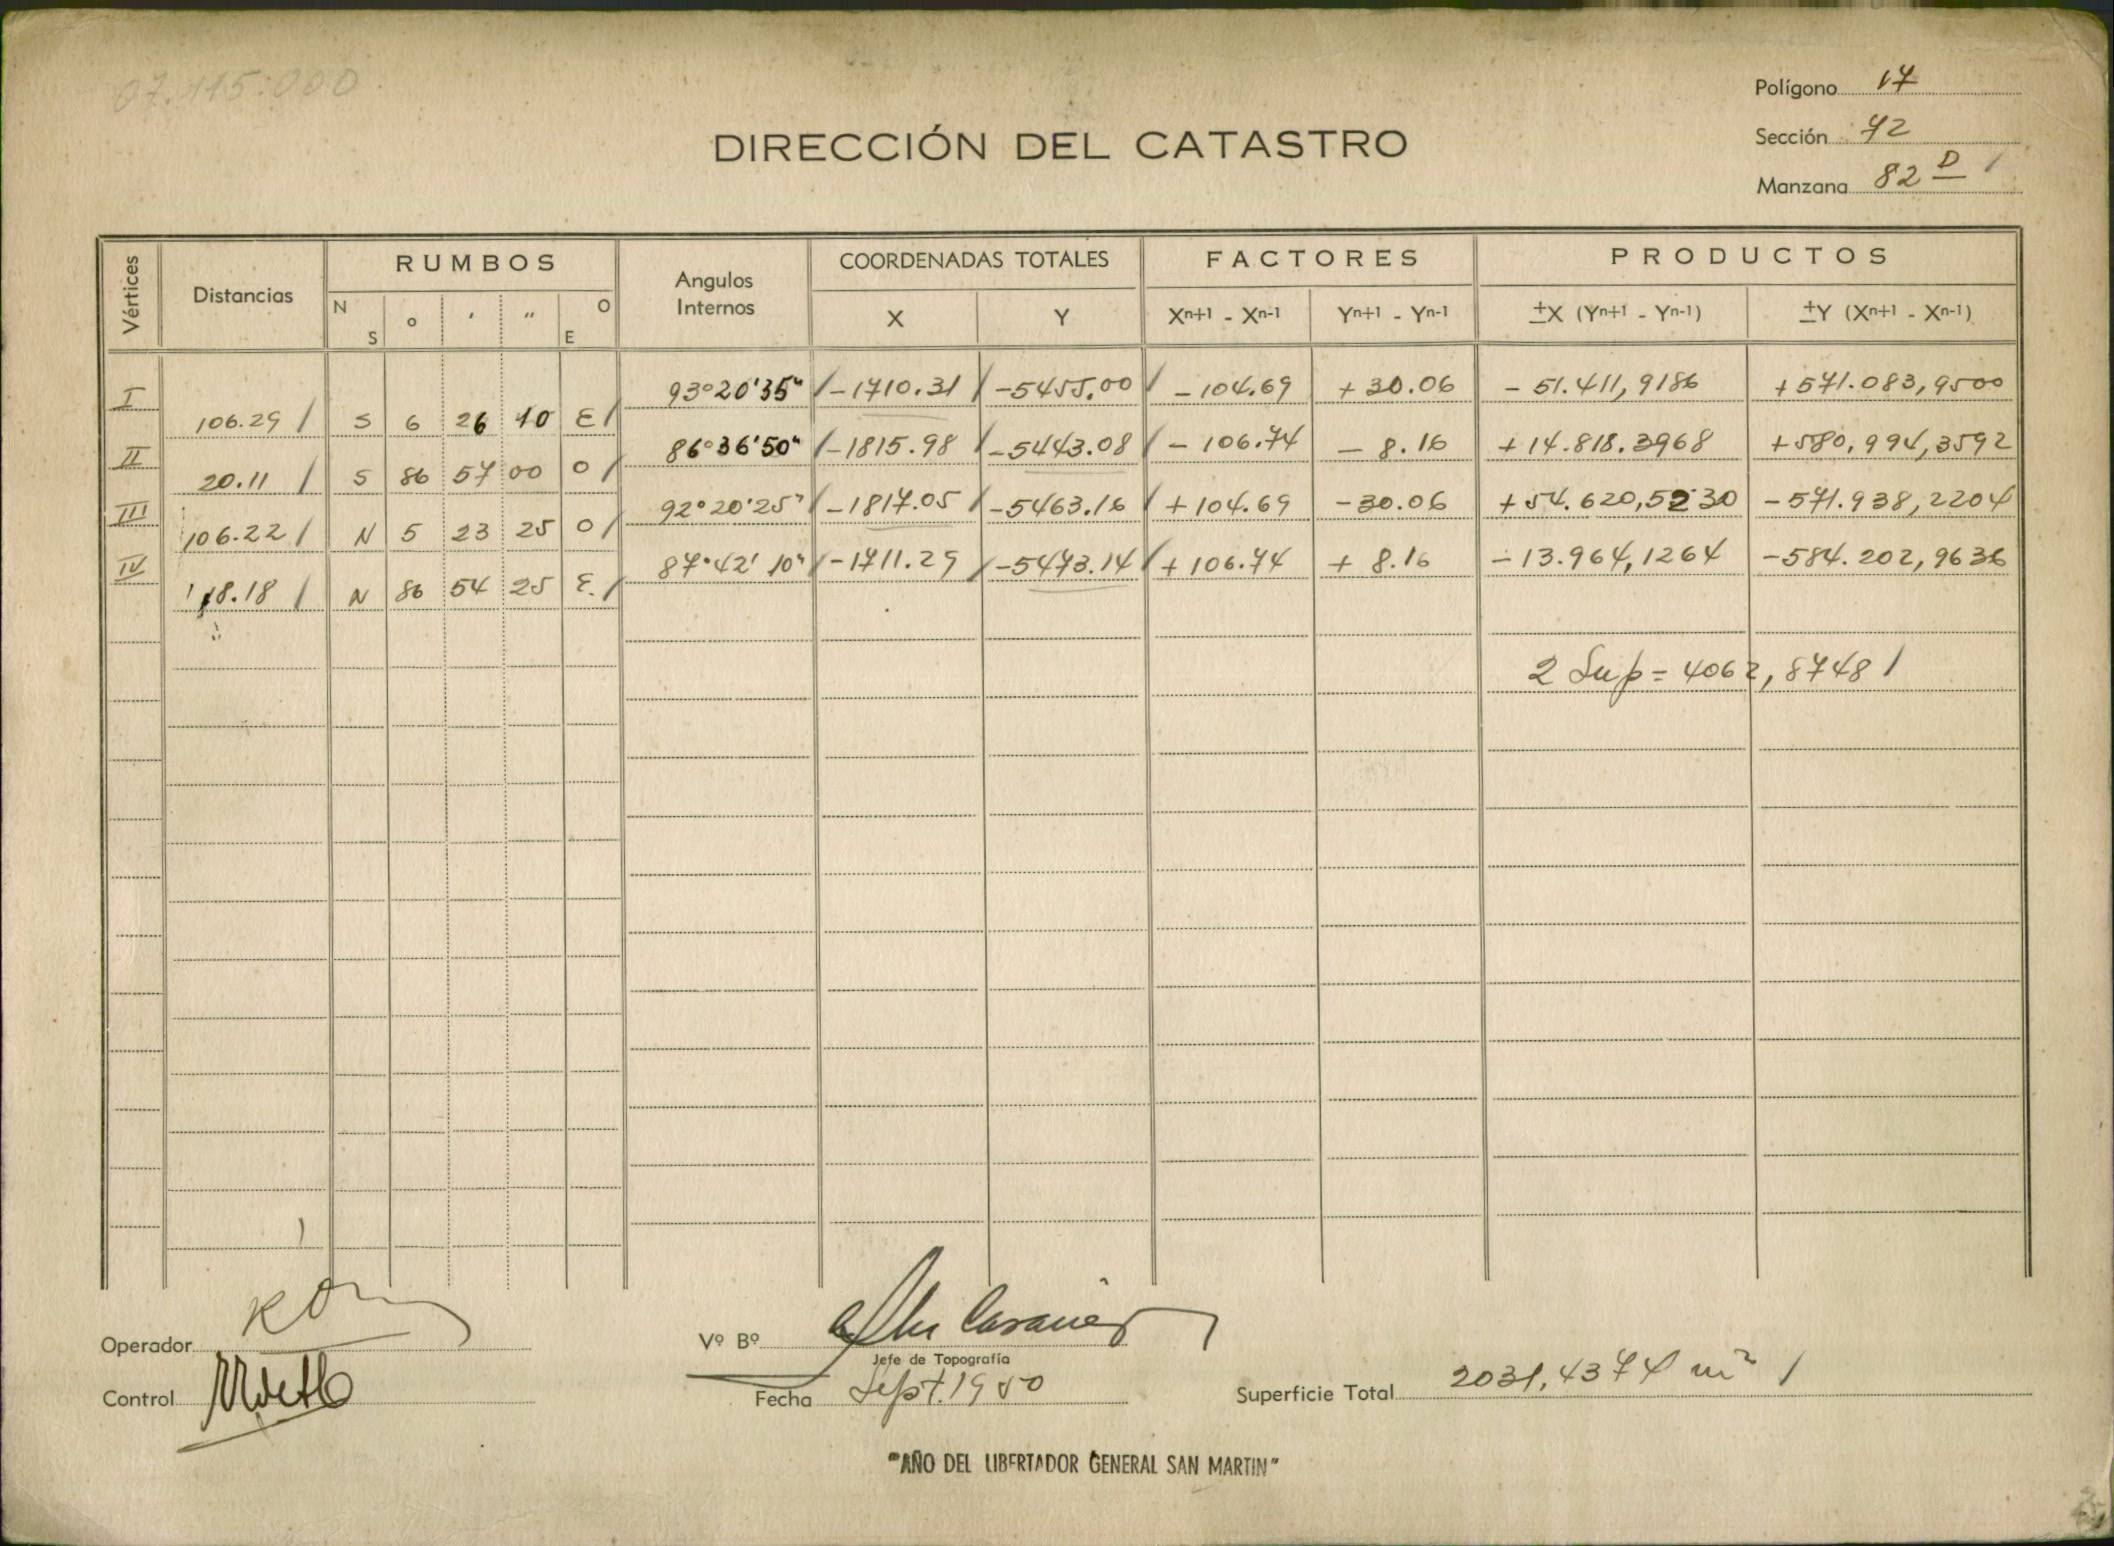 07.115:000
Polígono 17
Sección 72
Manzana 82 D
DIRECCIÓN DEL CATASTRO
Vértices Distancias RUMBOS Angulos Internos COORDENADAS TOTALES FACTORES PRODUCTOS
N S ° ' " O E X Y Xn+1 - Xn-1 Yn+1 - Yn-1 ±X (Yn+1 - Yn-1) ±Y (Xn+1 - Xn-1)
I 93°20'35" -1710.31 -5455.00 -104.69 +30.06 -51.411,9186 +571.083,9500
106.29 S 6 26 10 E
II 86°36'50" -1815.98 -5443.08 -106.74 -8.16 +14.818.3968 +580,994,3592
20.11 S 86 57 00 O
III 92°20'25" -1817.05 -5463.16 +104.69 -30.06 +54.620,5230 -571.938,2204
106.22 N 5 23 25 O
IV 87°42'10" -1711.29 -5473.14 +106.74 +8.16 -13.964,1264 -584.202,9636
18.18 N 86 54 25 E.
2 Sup = 4062,8748
Operador
Vº Bº
Jefe de Topografía
Control
Fecha Sept. 1950
Superficie Total 2031,4374 m²
"AÑO DEL LIBERTADOR GENERAL SAN MARTIN"